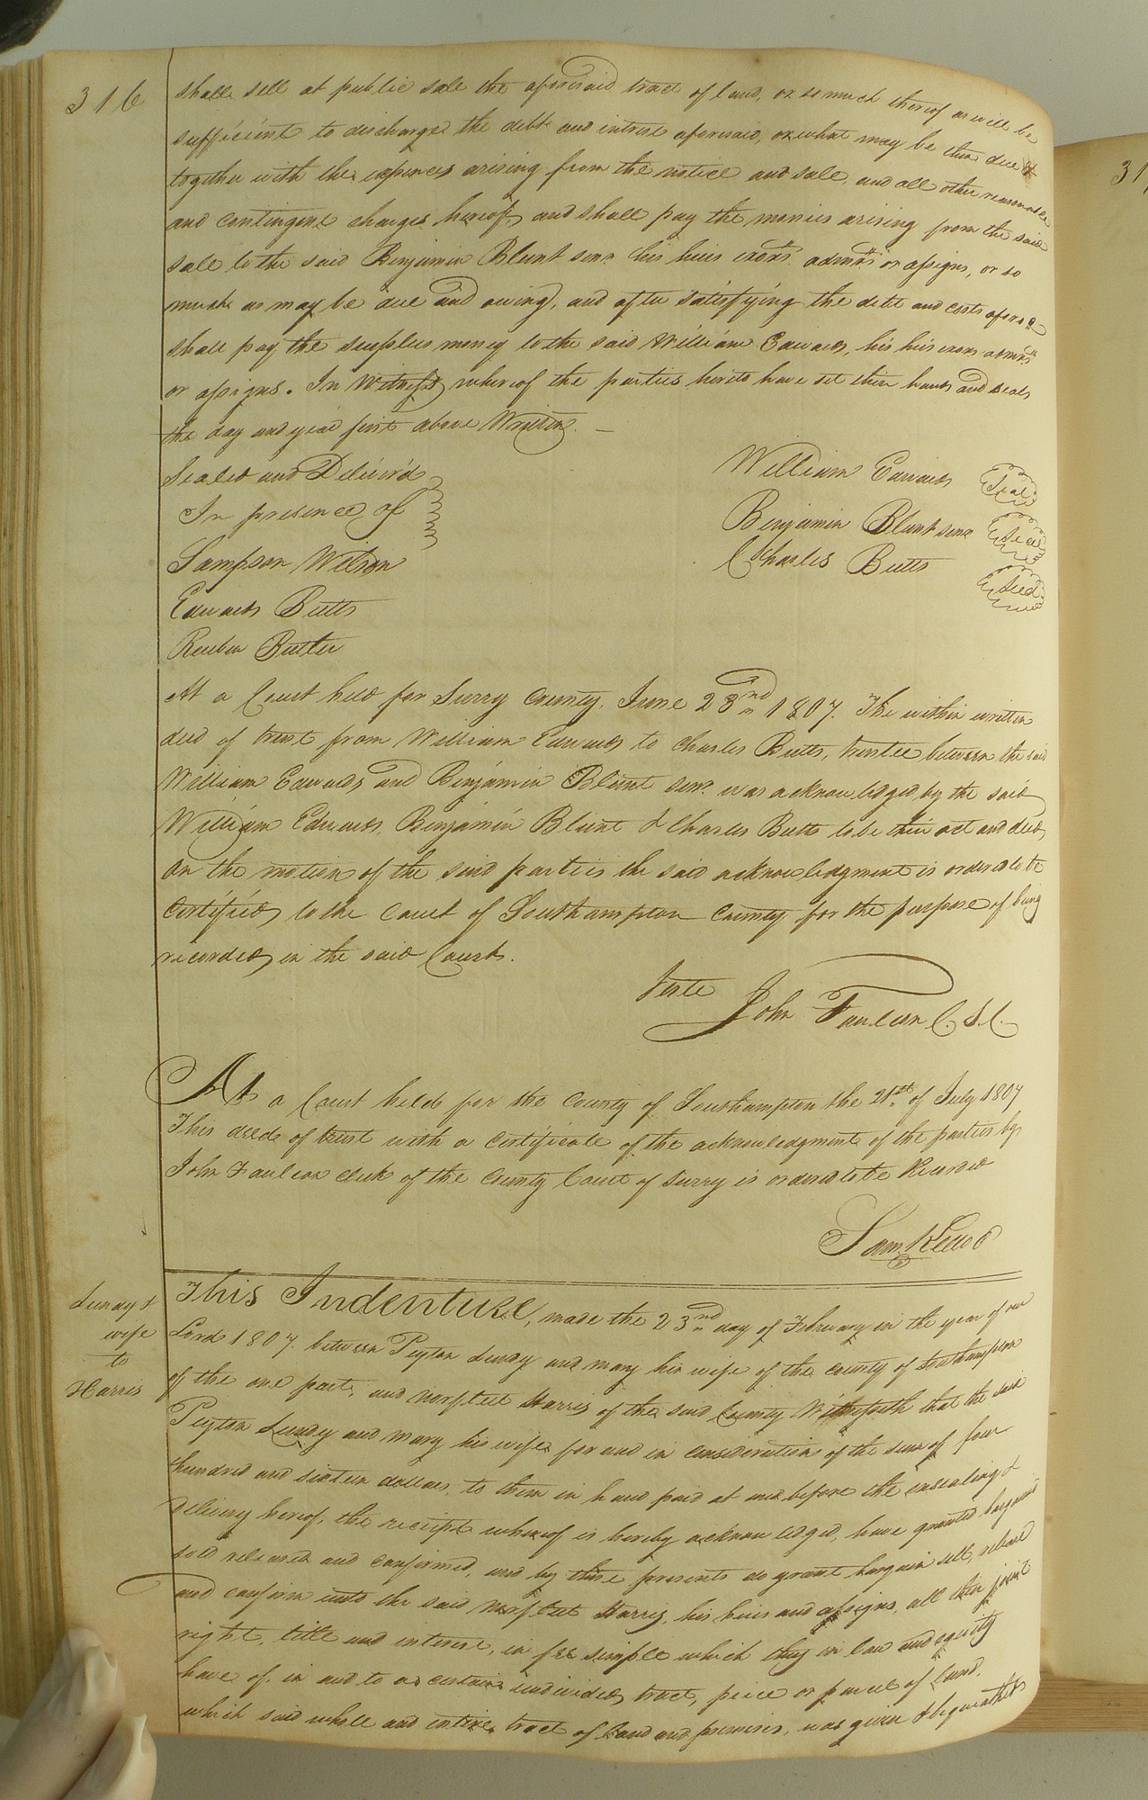 316
shall sell at public sale the aforesaid tract of land, or so much thereof as will be
sufficient to discharge the debt and intrest aforesaid, or what may be then due &
together with the expences arising from the notice and sale, and all other reasonable
and contingent charges hereof, and shall pay the monies arising from the said
sale to the said Benjamin Blunt senr. his heirs exors. admrs. or assigns, or so
much as may be due and owing, and after satisfying the debt and costs afores
shall pay the surplus money to the said William Edwards, his heirs exors admrs
or assigns. In Witness whereof the parties hereto have set their hands and seals
the day and year first above Written. —
Sealed and Deliver'd
In presence of
Sampson Wilson
Edwards Butts
Reuben Butler
William Edwards Seal
Benjamin Blunt senr Seal
Charles Butts Seal
At a Court held for Surry County, June 23nd 1807. The within written
deed of trust from William Edwards to Charles Butts, trustee between the said
William Edwards and Benjamin Blunt senr. was acknowledged by the said
William Edwards, Benjamin Blunt & Charles Butts to be their act and deed,
On the motion of the said parties the said acknowledgment is ordered to be
Certified, to the Court of Southampton County for the purpose of being
recorded, in the said Court.
Teste John Faulcon C. S. C.
At a Court held for the County of Southampton the 21st. of July 1807
This deed of trust with a certificate of the acknowledgment of the parties by
John Faulcon clerk of the County Court of Surry is ordered to be Recorded
Sam Kello
Lunday &
wife
to
Harris
This Indenture, made the 23nd day of February in the year of our
Lord 1807. between Peyton Lundy and Mary his wife of the county of Southampton
of the one part, and Norfleet Harris of the said County Witnesseth that the said
Peyton Lundy and Mary his wife, for and in consideration of the sum of four
hundred and sixteen dollars, to them in hand paid at and before the ensealing &
delivery hereof, the receipt whereof is hereby acknowledged, have granted bargained
sold released and confirmed, and by these presents do grant bargain sell, release
and confirm unto the said Norfleet Harris, his heirs and assigns, all their joint
right, title and interest, in fee simple which they in law and equity
have of, in and to a certain undivided tract, peice or parcel of land,
which said whole and entire tract of land and premises, was given & bequeathed